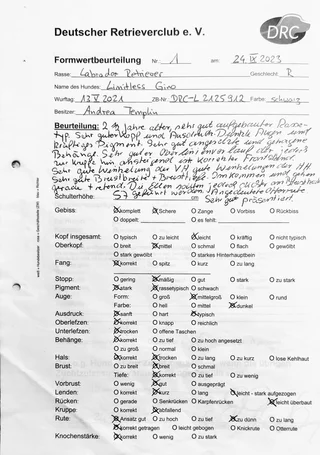 Deutscher Retrieverclub e. V.
DRC
Formwertbeurteilung Nr. 1 am: 24.IX.2023
Rasse: Labrador Retriever Geschlecht: R
Name des Hundes: Limitless Gino
Wurftag 13.V.2021 ZB-Nr. DRC-L 2125912 Farbe schwarz
Besitzer: Andrea Templin
Beurteilung: 2 Jahre alter, sehr gut aufgebauter
typ. Sehr guter Kopf und Ausdruck. Dunkle Augen und
kräftiges Pigment. Sehr gut angesetzte und getragene
Behänge. Sehr guter
zur Kruppe hin ansteigend ist. Korrekter
Sehr gute Winkelung der VH gute Winkelung der HH
Sehr gute Brusttiefe + Brustbreite. kommen und gehen
gerade + Die Ellen
Schulterhöhe: 57 cm Sehr gut präsentiert.
Gebiss: komplett Schere Zange Vorbiss Rückbiss
doppelt: es fehlt:
Kopf insgesamt: typisch zu leicht leicht kräftig nicht typisch
Oberkopf: breit mittel schmal flach gewölbt
stark gewölbt starkes Hinterhauptbein
Fang: korrekt spitz kurz zu lang
Stopp: gering mäßig gut stark zu stark
Pigment: stark rassetypisch schwach
Auge: Form: groß mittelgroß klein rund
Farbe: hell mittel dunkel
Ausdruck: sanft hart typisch
Oberlefzen: korrekt knapp reichlich
Unterlefzen: trocken offene Taschen
Behänge: korrekt zu tief zu hoch angesetzt
zu groß normal klein
Hals: korrekt trocken zu lang zu kurz lose Kehlhaut
Brust: zu breit breit schmal
Tiefe: korrekt zu tief zu wenig
Vorbrust: wenig gut ausgeprägt
Lenden: korrekt kurz lang leicht - stark aufgezogen
Rücken: gerade Senkrücken Karpfenrücken leicht überbaut
Kruppe: korrekt abfallend
Rute: Ansatz gut zu hoch zu tief zu dünn zu lang
korrekt getragen leicht gebogen Knickrute Ottenrute
Knochenstärke: korrekt wenig zu stark